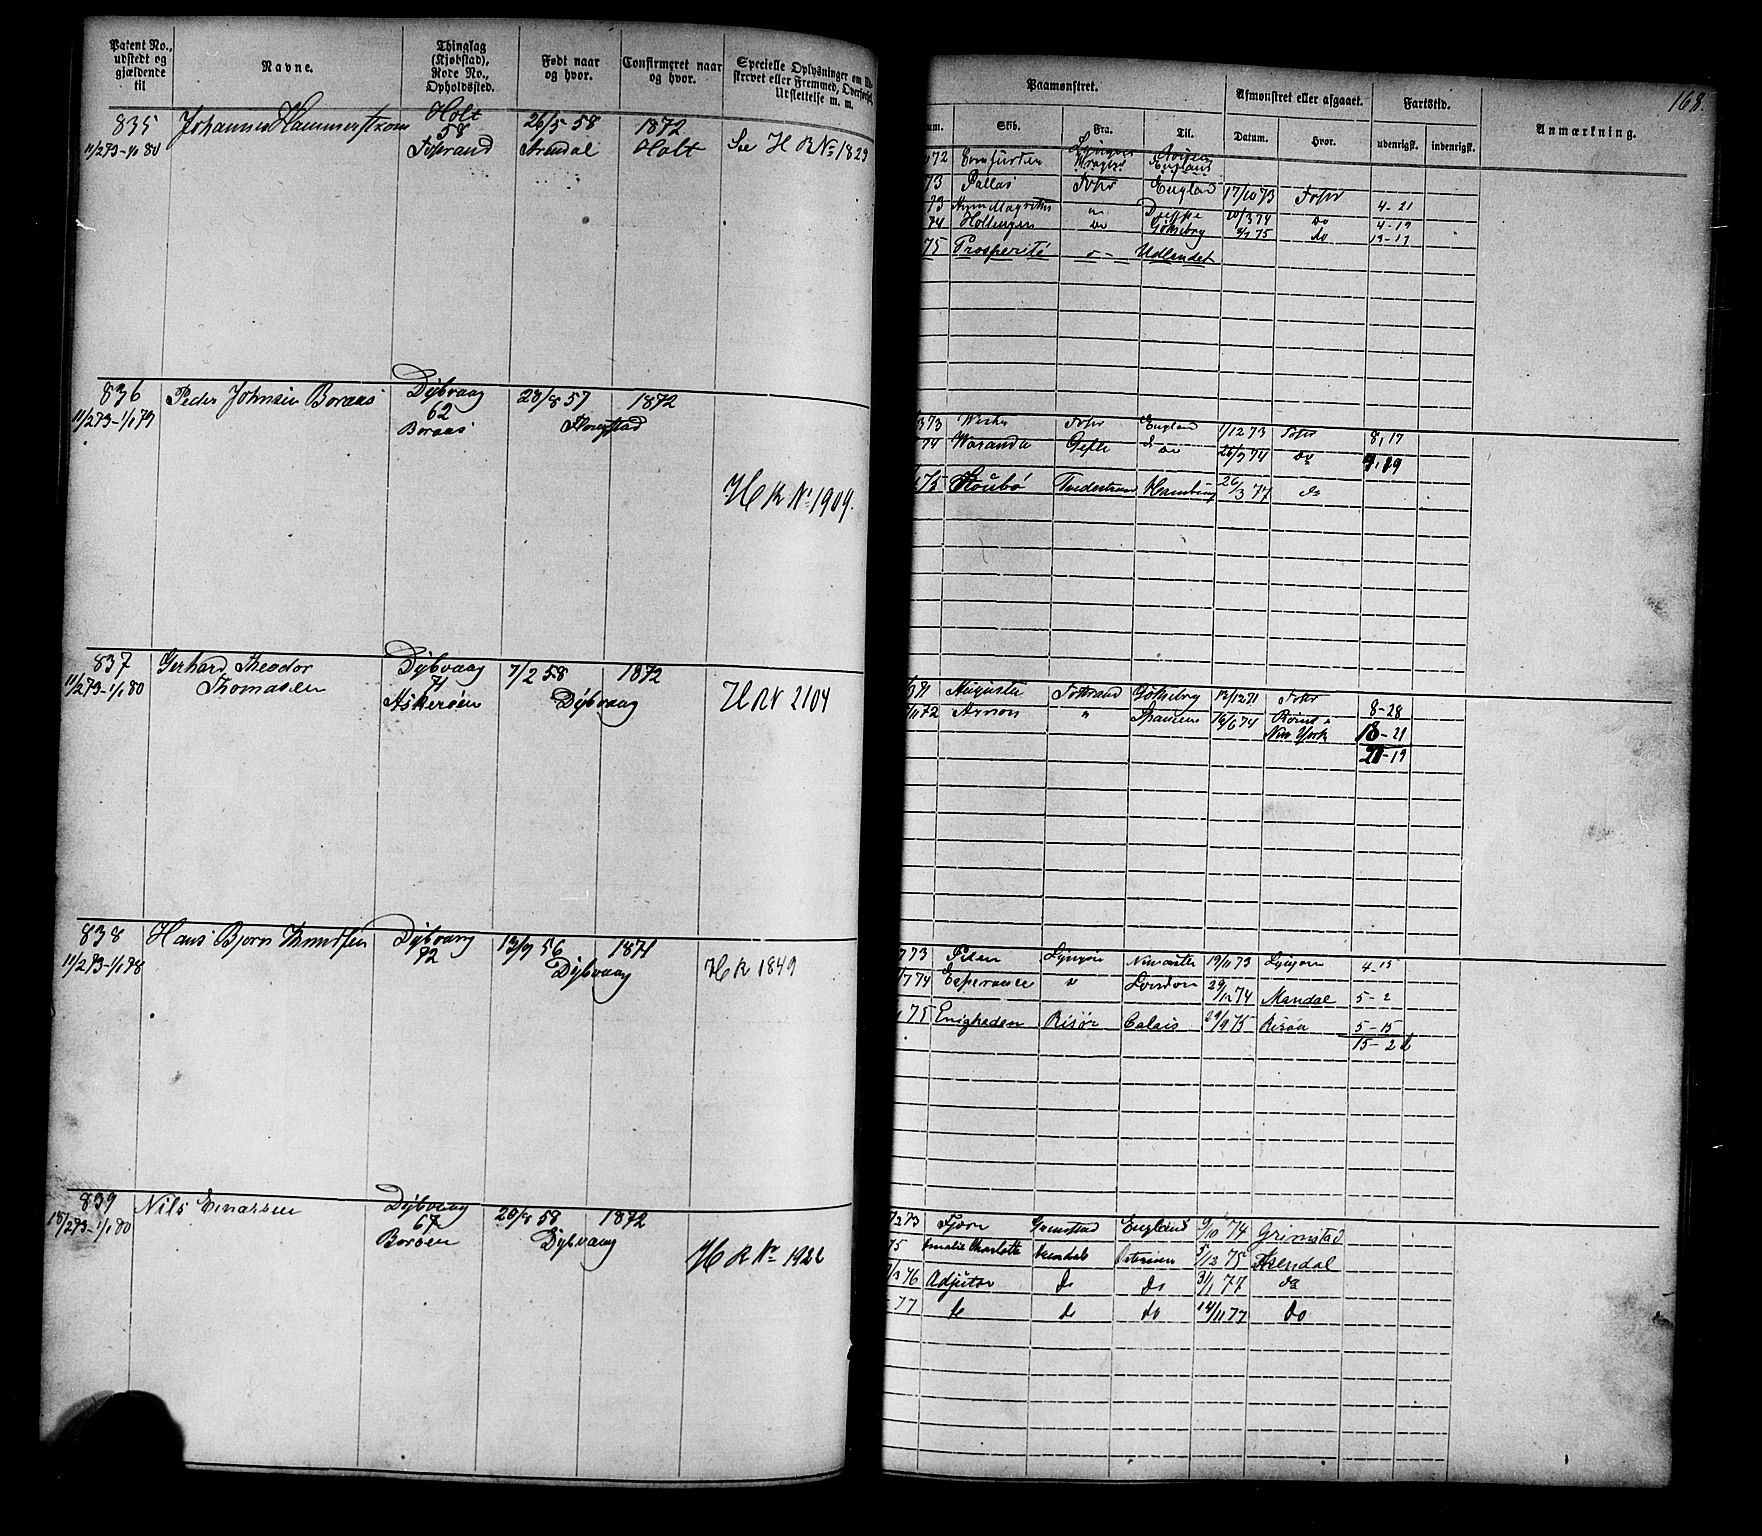 Patent No., udstedt og gjældende til
Navne.
Thinglag (Kjøbstad), Rode No., Opholdssted.
Født naar og hvor.
Confirmeret naar og hvor.
Specielle Oplysninger om
strevet eller Fremmed, Overført,
Udslettelse m. m.
Paamønstret.
Afmønstret eller afgaaet.
Fartstid.
Anmærkning.
168.
Skib.
Fra.
Til.
Datum.
Hvor.
udenrigsk.
indenrigsk.
835 Johannes Hammerstrøm Holt 26/5 58 1872
58
11/2 73-1/1 80 Tvedestrand Arendal Holt See H R No 1829
72 England
73 Pallas Tvstr England 17/10 73 Tvstr 4-21
73 Dieppe 20/3 74 do 4-19
74 Gøteborg 75 do 13-17
75 Prosperité Udlandet
836 Peder Johnsen Boraas Dybvaag 28/8 57 1872
11/2 73-1/1 79 62
Boraas Flougstad
H R No 1909.
73 Tvstr England 1/12 73 Tvstr 8,17
74 Waranda Gefle do 26/7 74 do 9,19
75 Tvedestrand Hamburg 26/3 77 do
837 Gerhard Theodor Dybvaag 7/2 58 1872
11/2 73-1/1 80 Thomassen 71
Askerøen Dybvaag H R 2104
71 Augusta Gøteborg 12/12 71 Tvstr 8-28
72 " Spanien 16/6 74 18-21
New York
27-19
838 Hans Bjørn Knudsen Dybvaag 13/9 56 1871
11/2 73-1/1 78 72 Dybvaag H R 1849
73 Lyngør Newcastle 19/11 73 Lyngør 4-15
74 Esperance " London 29/12 74 Mandal 5-2
75 Enigheden Risør Calais 29/9 75 Risør 5-15
15-2
839 Nils Einarsen Dybvaag 20/8 58 1872
18/2 73-1/1 80 67
Borøen Dybvaag
H R No 1922
73 Grimstad England 9/10 74 Grimstad
75 Amalie Charlotte Arendal 5/12 75 Arendal
76 Adjutor do do 31/1 77 do
77 do do do 14/11 77 do